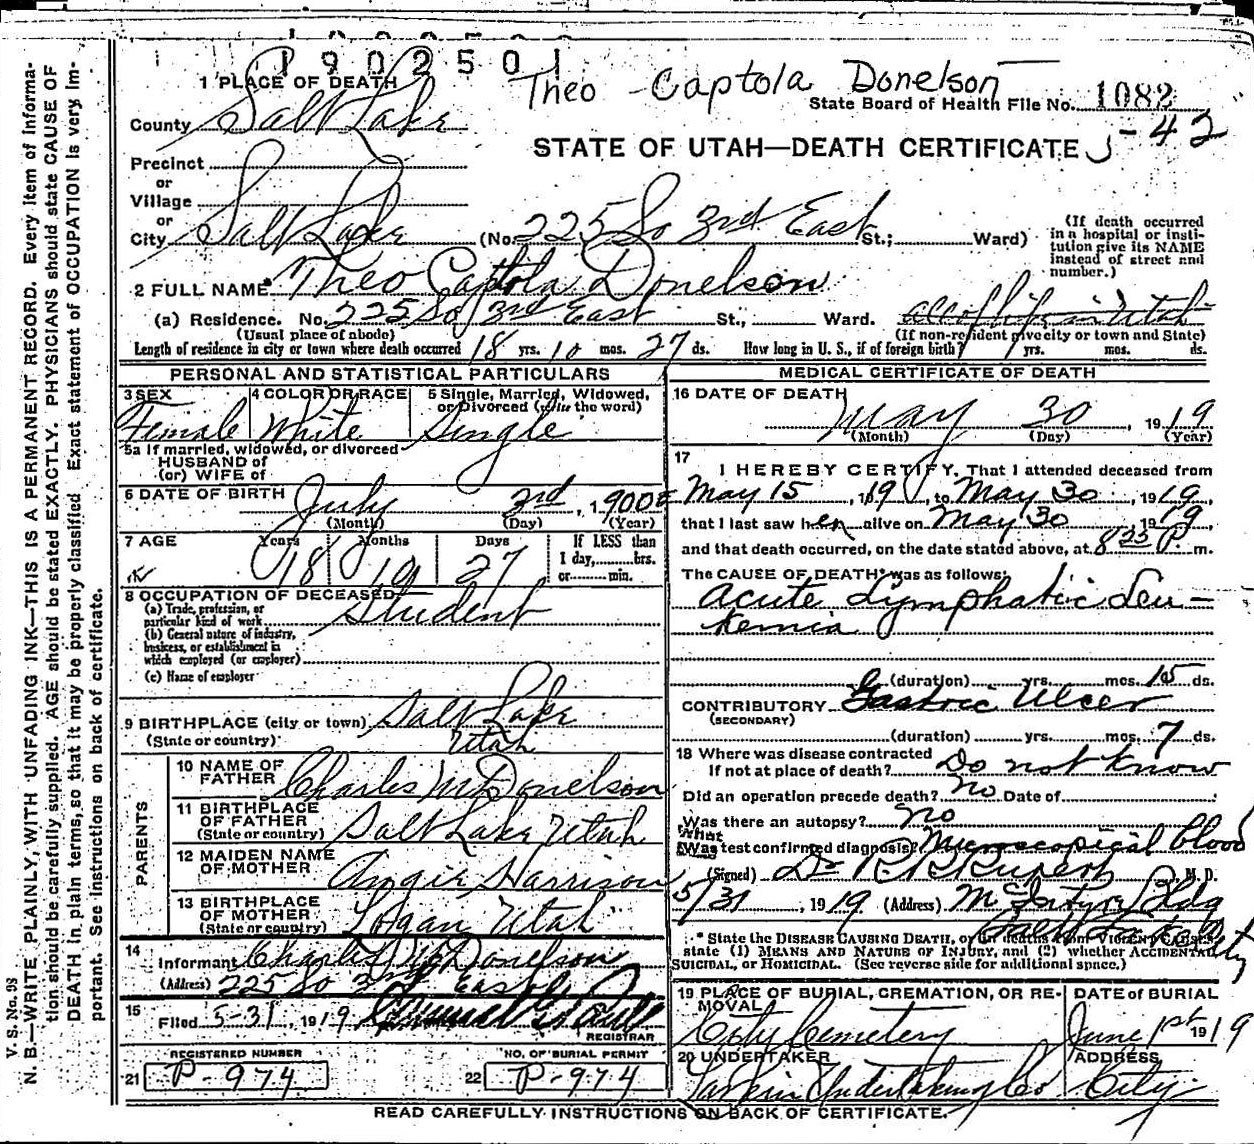 1902501
Theo Captola Donelson
1 PLACE OF DEATH
State Board of Health File No. 1082
County Salt Lake
J-42
STATE OF UTAH—DEATH CERTIFICATE
Precinct
or
Village
or
City Salt Lake (No. 225 So 3rd East St.; Ward)
(If death occurred in a hospital or institution give its NAME instead of street and number.)
2 FULL NAME Theo Captola Donelson
(a) Residence. No. 225 So 3rd East St., Ward. all of life in Utah
(Usual place of abode) (If non-resident give city or town and State)
Length of residence in city or town where death occurred 18 yrs. 10 mos. 27 ds. How long in U. S., if of foreign birth? yrs. mos. ds.
PERSONAL AND STATISTICAL PARTICULARS
3 SEX Female
4 COLOR OR RACE White
5 Single, Married, Widowed, or Divorced (write the word) Single
5a If married, widowed, or divorced
HUSBAND of
(or) WIFE of
6 DATE OF BIRTH July 3rd, 1900
(Month) (Day) (Year)
7 AGE Years Months Days If LESS than
18 10 27 1 day, hrs.
or min.
8 OCCUPATION OF DECEASED
(a) Trade, profession, or particular kind of work Student
(b) General nature of industry, business, or establishment in which employed (or employer)
(c) Name of employer
9 BIRTHPLACE (city or town) Salt Lake
(State or country) Utah
PARENTS
10 NAME OF FATHER Charles M Donelson
11 BIRTHPLACE OF FATHER (State or country) Salt Lake Utah
12 MAIDEN NAME OF MOTHER Angie Harrison
13 BIRTHPLACE OF MOTHER (State or country) Logan Utah
14 Informant Charles M Donelson
(Address) 225 So 3rd East
15 Filed 5-31, 1919
REGISTRAR
REGISTERED NUMBER
21 P-974
NO. OF BURIAL PERMIT
22 P-974
MEDICAL CERTIFICATE OF DEATH
16 DATE OF DEATH
May 30, 1919
(Month) (Day) (Year)
17 I HEREBY CERTIFY, That I attended deceased from
May 15, 1919, to May 30, 1919,
that I last saw her alive on May 30 1919
and that death occurred, on the date stated above, at 8 25 P. m.
The CAUSE OF DEATH* was as follows:
Acute Lymphatic Leu-
kemia
(duration) yrs. mos. 15 ds.
CONTRIBUTORY Gastric Ulcer
(SECONDARY)
(duration) yrs. mos. 7 ds.
18 Where was disease contracted
If not at place of death? Do not know
Did an operation precede death? No Date of
Was there an autopsy? No
What test confirmed diagnosis? Microscopical blood
(Signed) Dr, M. D.
5/31, 1919 (Address) McIntyre Bldg
Salt Lake City
* State the DISEASE CAUSING DEATH, or in deaths from VIOLENT CAUSES,
state (1) MEANS AND NATURE OF INJURY, and (2) whether ACCIDENTAL,
SUICIDAL, or HOMICIDAL. (See reverse side for additional space.)
19 PLACE OF BURIAL, CREMATION, OR REMOVAL
City Cemetery
DATE of BURIAL
June 1st 1919
20 UNDERTAKER
Larkin Undertaking Co
ADDRESS
City
READ CAREFULLY INSTRUCTIONS ON BACK OF CERTIFICATE.
V. S. No. 93
N. B.—WRITE PLAINLY, WITH UNFADING INK—THIS IS A PERMANENT RECORD. Every item of informa-
tion should be carefully supplied. AGE should be stated EXACTLY. PHYSICIANS should state CAUSE OF
DEATH in plain terms, so that it may be properly classified. Exact statement of OCCUPATION is very im-
portant. See instructions on back of certificate.